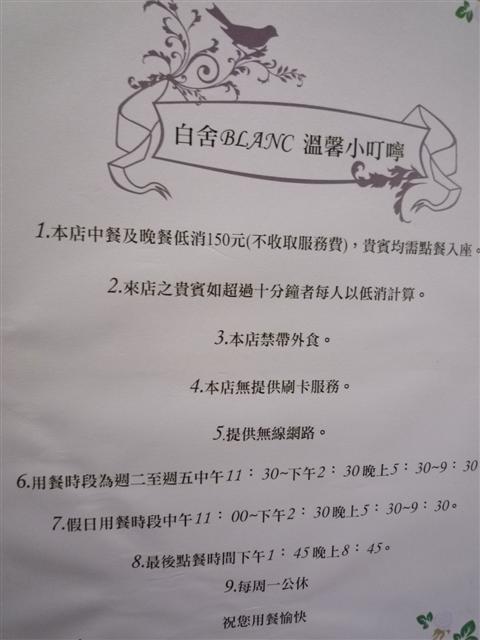 白舍BLANC 溫馨小叮嚀
1.本店中餐及晚餐低消150元(不收取服務費)，貴賓均需點餐入座。
2.來店之貴賓如超過十分鐘者每人以低消計算。
3.本店禁帶外食。
4.本店無提供刷卡服務。
5.提供無線網路。
6.用餐時段為週二至週五中午11：30~下午2：30晚上5：30~9：30
7.假日用餐時段中午11：00~下午2：30晚上5：30~9：30。
8.最後點餐時間下午1：45晚上8：45。
9.每周一公休
祝您用餐愉快